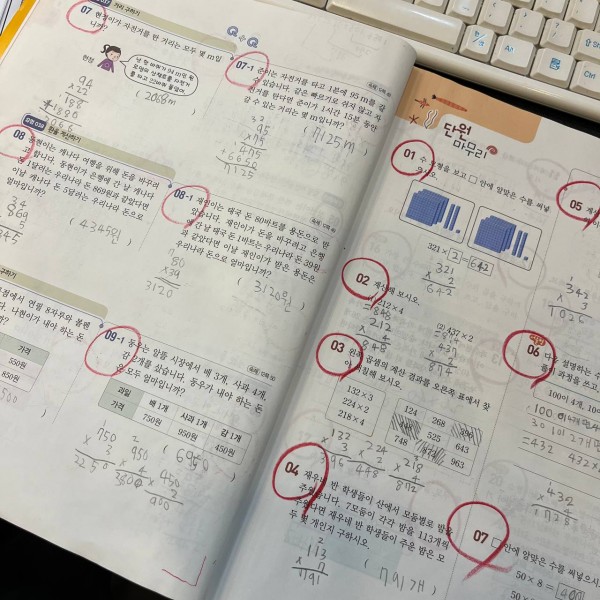 거리 구하기
07
현정이가 자전거를 탄 거리는 모두 몇 m입
니까?
현정
94
× 22
188
1880
2068
(2068m)
Q+Q
07-1 준비는 자전거를 타고 1분에 95 m를 갈
수 있습니다. 같은 빠르기로 쉬지 않고 자
전거를 탄다면 준이가 1시간 15분 동안
갈 수 있는 거리는 몇 m입니까?
95
× 75
475
6650
7125
(7125m)
돈을 계산하기
08
동현이는 캐나다 여행을 위해 돈을 바꾸려
고 합니다. 동현이가 은행에 간 날 캐나다
돈 1달러는 우리나라 돈 869원과 같았다면
이날 캐나다 돈 5달러는 우리나라 돈으로
얼마입니까?
869
5
345
(4345원)
08-1 재인이는 태국 돈 80바트를 용돈으로 받
았습니다. 재인이가 돈을 바꾸려고 은행
에 간 날 태국 돈 1바트는 우리나라 돈 39원
과 같았다면 이날 재인이가 받은 용돈은
우리나라 돈으로 얼마입니까?
80
× 39
3120
(3120원)
구하기
점에서 연필 8자루와 볼펜
다. 나현이가 내야 하는 돈
까?
가격
550원
850원
09-1 동우는 알뜰 시장에서 배 3개, 사과 4개,
감 2개를 샀습니다. 동우가 내야 하는 돈
은 모두 얼마입니까?
과일 배 1개 사과 1개 감 1개
가격 750원 950원 450원
750
× 3
2250
950
× 4
3800
450
× 2
900
단원
마무리
01 수 모형을 보고 □ 안에 알맞은 수를 써넣
으시오.
321 × 2 = 642
321
× 2
642
02 계산해 보시오.
(1) 212 × 4
= 848
212
× 4
848
(2) 437 × 2
= 874
437
× 2
874
03 왼쪽 곱셈의 계산 결과를 오른쪽 표에서 찾
아 색칠해 보시오.
132 × 3
224 × 2
218 × 4
124 268 396
448 525 643
748 874 963
132
× 3
396
224
× 2
448
218
× 4
872
04 재우네 반 학생들이 산에서 모둠별로 밤을
주웠습니다. 7모둠이 각각 밤을 113개씩
주웠다면 재우네 반 학생들이 주운 밤은 모
두 몇 개인지 구하시오.
113
× 7
791
(791개)
05
342
× 3
1026
06
100이 4개, 10
432
× 4
1728
07 □ 안에 알맞은 수를 써넣으시
50 × 8 = 400
50 ×